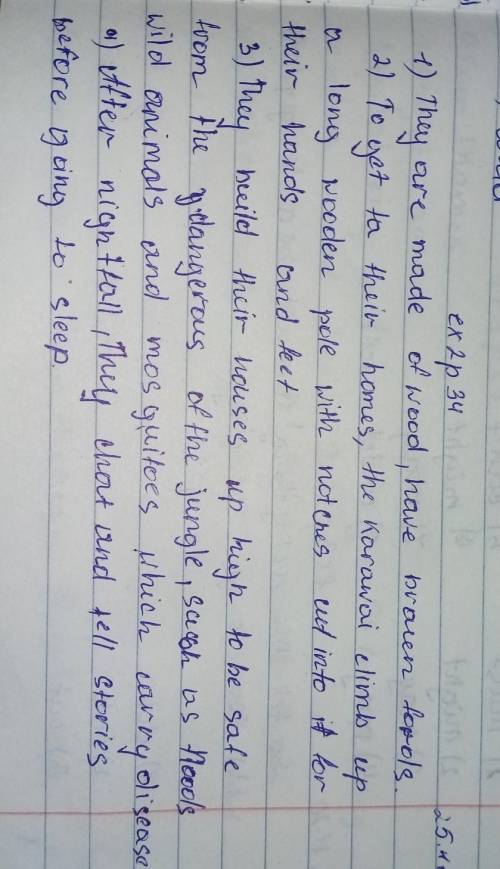 ex 2 p 34
25.
1) They are made of wood, have
2) To get to their homes, the Karawai climb up
a long wooden pole with notches cut into it for
their hands and feet
3) They build their houses up high to be safe
from the dangerous of the jungle, such as floods
wild animals and mosquitoes which carry disease
4) After nightfall, They chat and tell stories
before going to sleep.